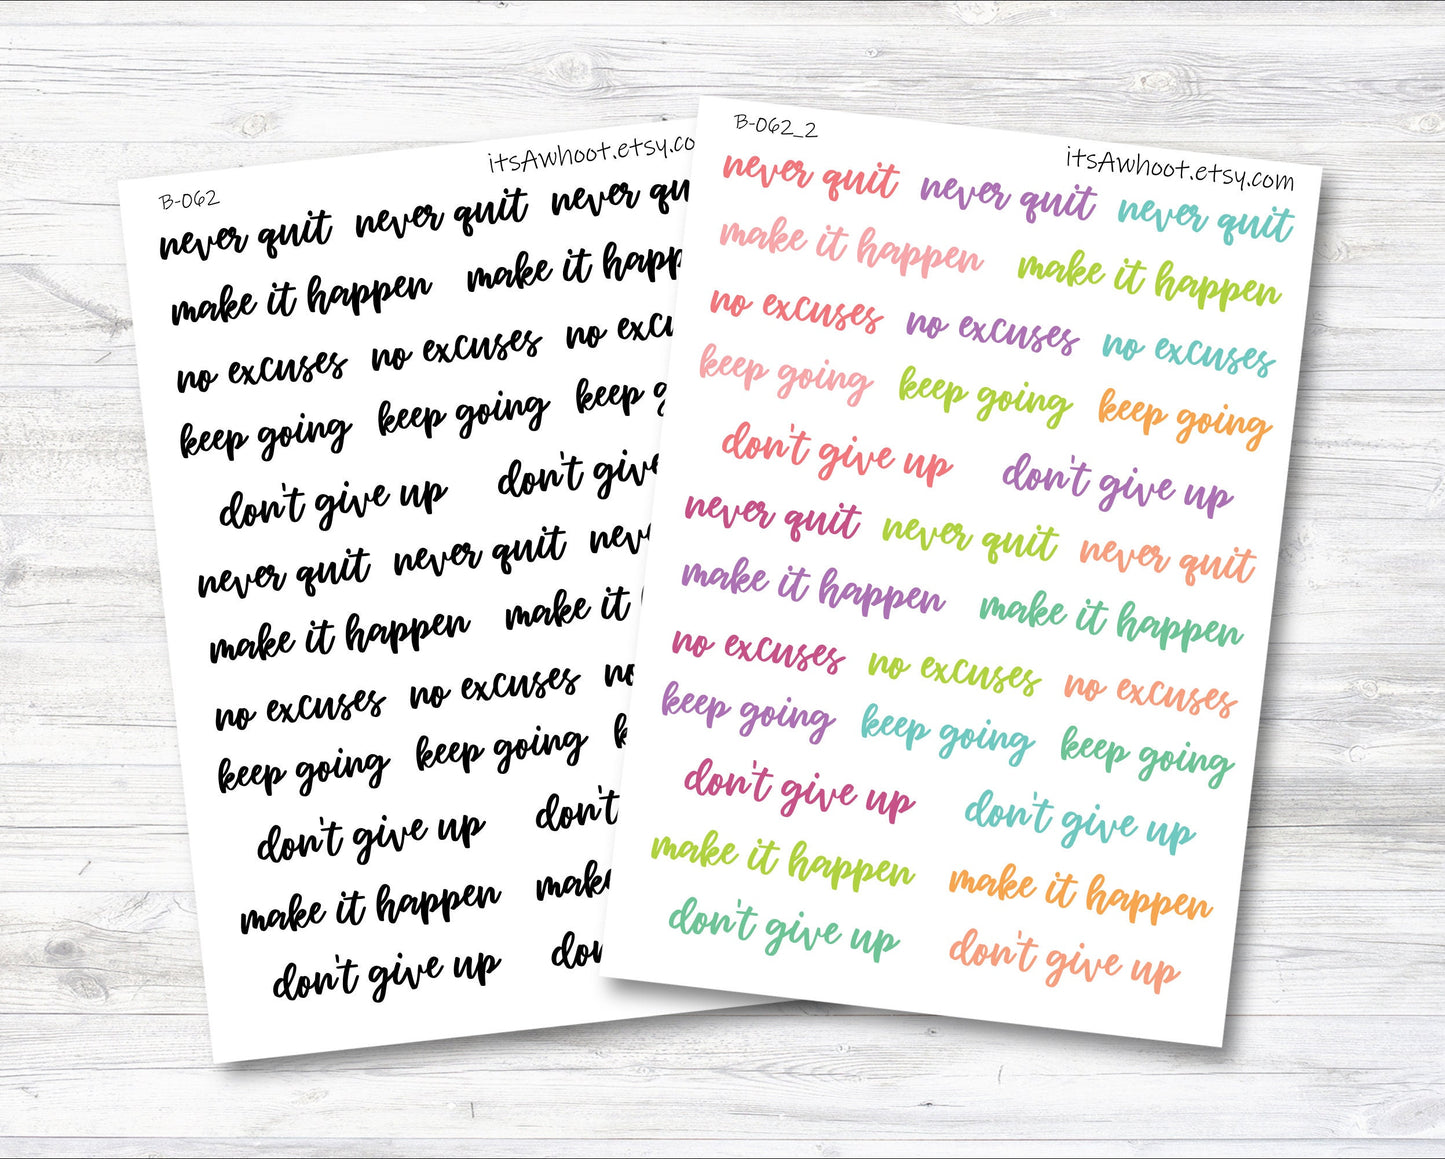 B-062
itsAwhoot.etsy.co
never quit never quit never qu
make it happen make it happ
no excuses no excuses no excu
keep going keep going keep g
don't give up don't give
never quit never quit neve
make it happen make it
no excuses no excuses no
keep going keep going k
don't give up don't
make it happen make
don't give up don
B-062_2
itsAwhoot.etsy.com
never quit never quit never quit
make it happen make it happen
no excuses no excuses no excuses
keep going keep going keep going
don't give up don't give up
never quit never quit never quit
make it happen make it happen
no excuses no excuses no excuses
keep going keep going keep going
don't give up don't give up
make it happen make it happen
don't give up don't give up